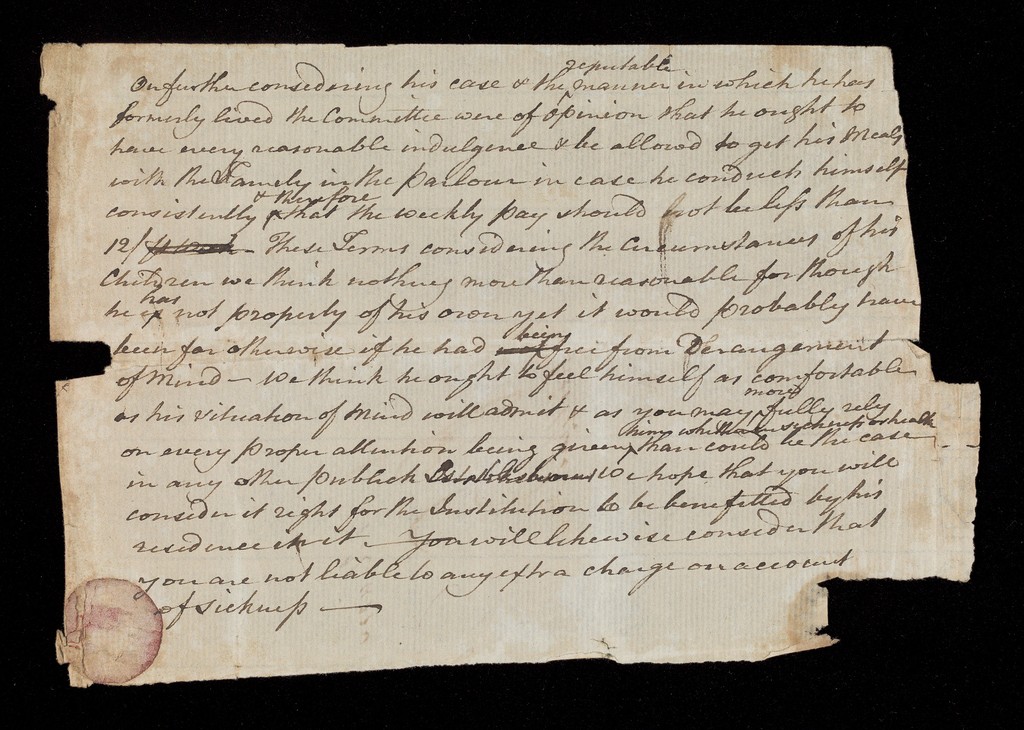 On further considering his case & the reputable manner in which he has
formerly lived the Committee were of opinion that he ought to
have every reasonable indulgence & be allowed to get his Meals
with the Family in the Parlour in case he conduct himself
consistently & therefore that the weekly pay should not be less than
12/ These Terms considering the Circumstances of his
Children we think nothing more than reasonable for though
he has not property of his own yet it would probably have
been far otherwise if he had been free from Derangement
of Mind — We think he ought to feel himself as comfortable
as his situation of Mind will admit & as you may more fully rely
on every proper attention being given him whether in sickness or health than could be the case
in any other publick Establishment We hope that you will
consider it right for the Institution to be benefitted by his
residence in it — You will likewise consider that
you are not liable to any extra charge on account
of sickness —